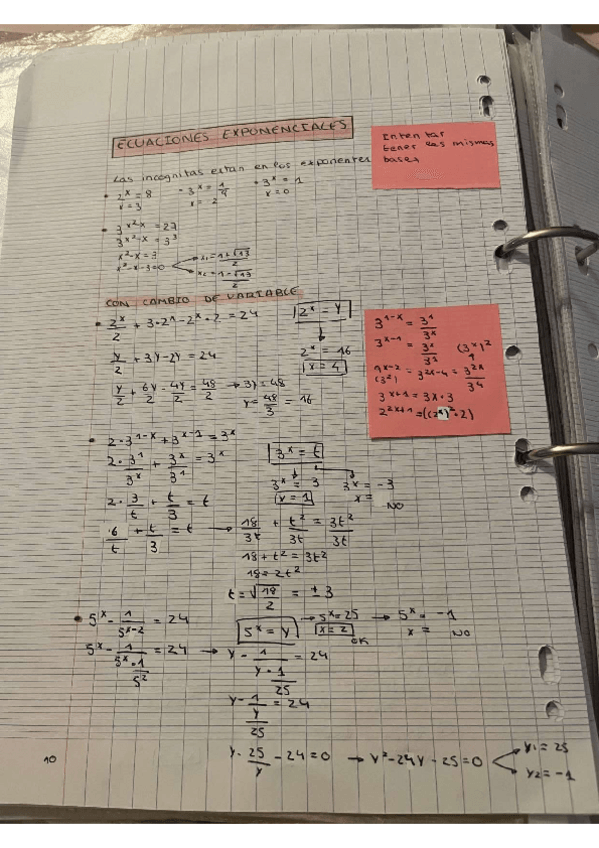 ECUACIONES EXPONENCIALES
Intentar
tener las mismas
bases
Las incognitas estan en los exponentes
• 2^x = 8 • 3^x = 1/9 • 3^x = 1
x = 3 x = -2 x = 0
• 3^(x²-x) = 27
3^(x²-x) = 3³
x²-x = 3
x²-x-3=0 x₁ = (1+√13)/2
x₂ = (1-√13)/2
CON CAMBIO DE VARIABLE
• 2^x/2 + 3·2^x - 2^x·2 = 24 2^x = y
2^x = 16
x = 4
y/2 + 3y - 2y = 24
y/2 + 6y/2 - 4y/2 = 48/2 → 3y = 48
y = 48/3 = 16
3^(1-x) = 3^1/3^x
3^(x-1) =
3^(x+1) = 3x·3
2^(2x+1) = ((2^x)²·2)
• 2·3^(1-x) + 3^(x-1) = 3^x 3^x = t
2·3^1/3^x + 3^x/3^1 = 3^x
3^x = 3 3^x = -3
x = 1 x = NO
2·3/t + t/3 = t
6/t + t/3 = t → 18/3t + t²/3t = 3t²/3t
18 + t² = 3t²
18 = 2t²
t = √(18/2) = ±3
• 5^x - 1/5^(x-2) = 24 5^x = y → 5^x = 25 → 5^x = -1
x = 2 OK x = NO
5^x - 1/(5^x·1/5²) = 24 → y - 1/(y·1/25) = 24
y - 1/(y/25) = 24
y - 25/y - 24 = 0 → y² - 24y - 25 = 0 y₁ = 25
y₂ = -1
10